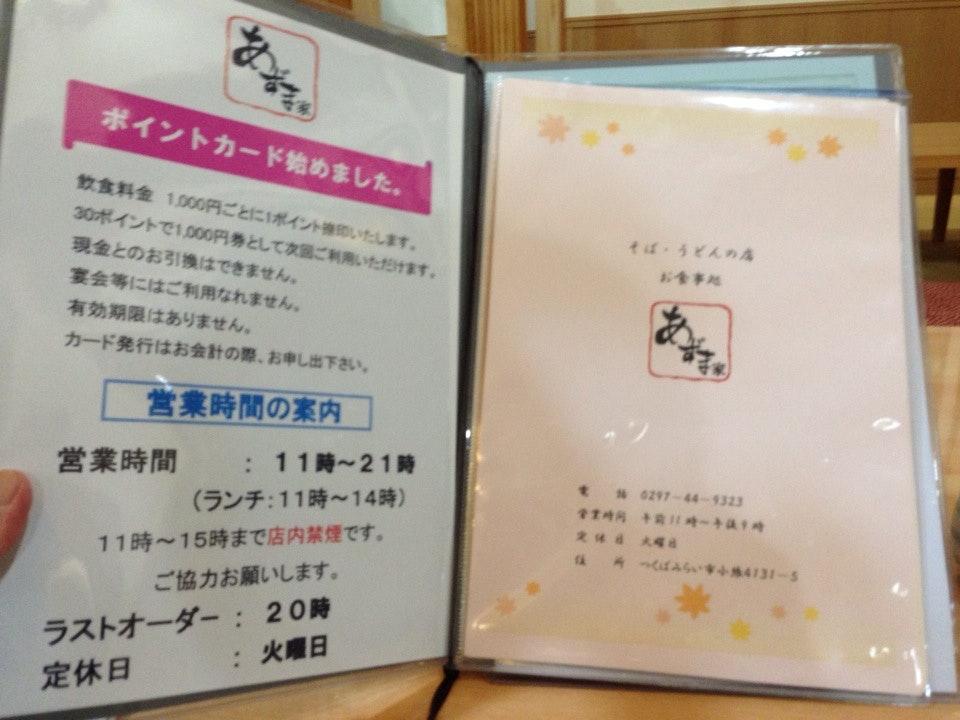 あずま家
ポイントカード始めました。
飲食料金 1,000円ごとに1ポイント捺印いたします。
30ポイントで1,000円券として次回ご利用いただけます。
現金とのお引換はできません。
宴会等にはご利用なれません。
有効期限はありません。
カード発行はお会計の際、お申し出下さい。
営業時間の案内
営業時間 : 11時～21時
(ランチ:11時～14時)
11時～15時まで店内禁煙です。
ご協力お願いします。
ラストオーダー : 20時
定休日 : 火曜日
そば・うどんの店
お食事処
あずま家
電話 0297-44-9323
営業時間 午前11時～午後9時
定休日 火曜日
住所 つくばみらい市小張4131-5